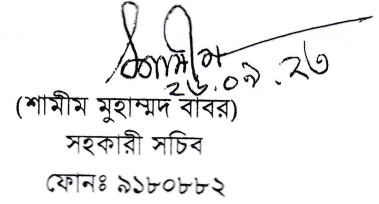 শামীম
২৬.০৯.২৩
(শামীম মুহাম্মদ বাবর)
সহকারী সচিব
ফোনঃ ৯১৮০৮৮২